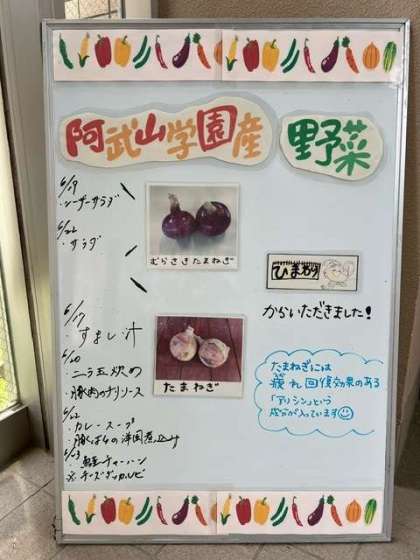 阿武山学園産 野菜
6/19
・シーザーサラダ
6/22
・サラダ
むらさきたまねぎ
ひまわり
からいただきました!
6/17
・すまし汁
6/20
・ニラ玉炒め
・豚肉のチリソース
6/22
・カレースープ
6/23
たまねぎ
たまねぎには
疲れ回復効果のある
「アリシン」という
成分が入っています